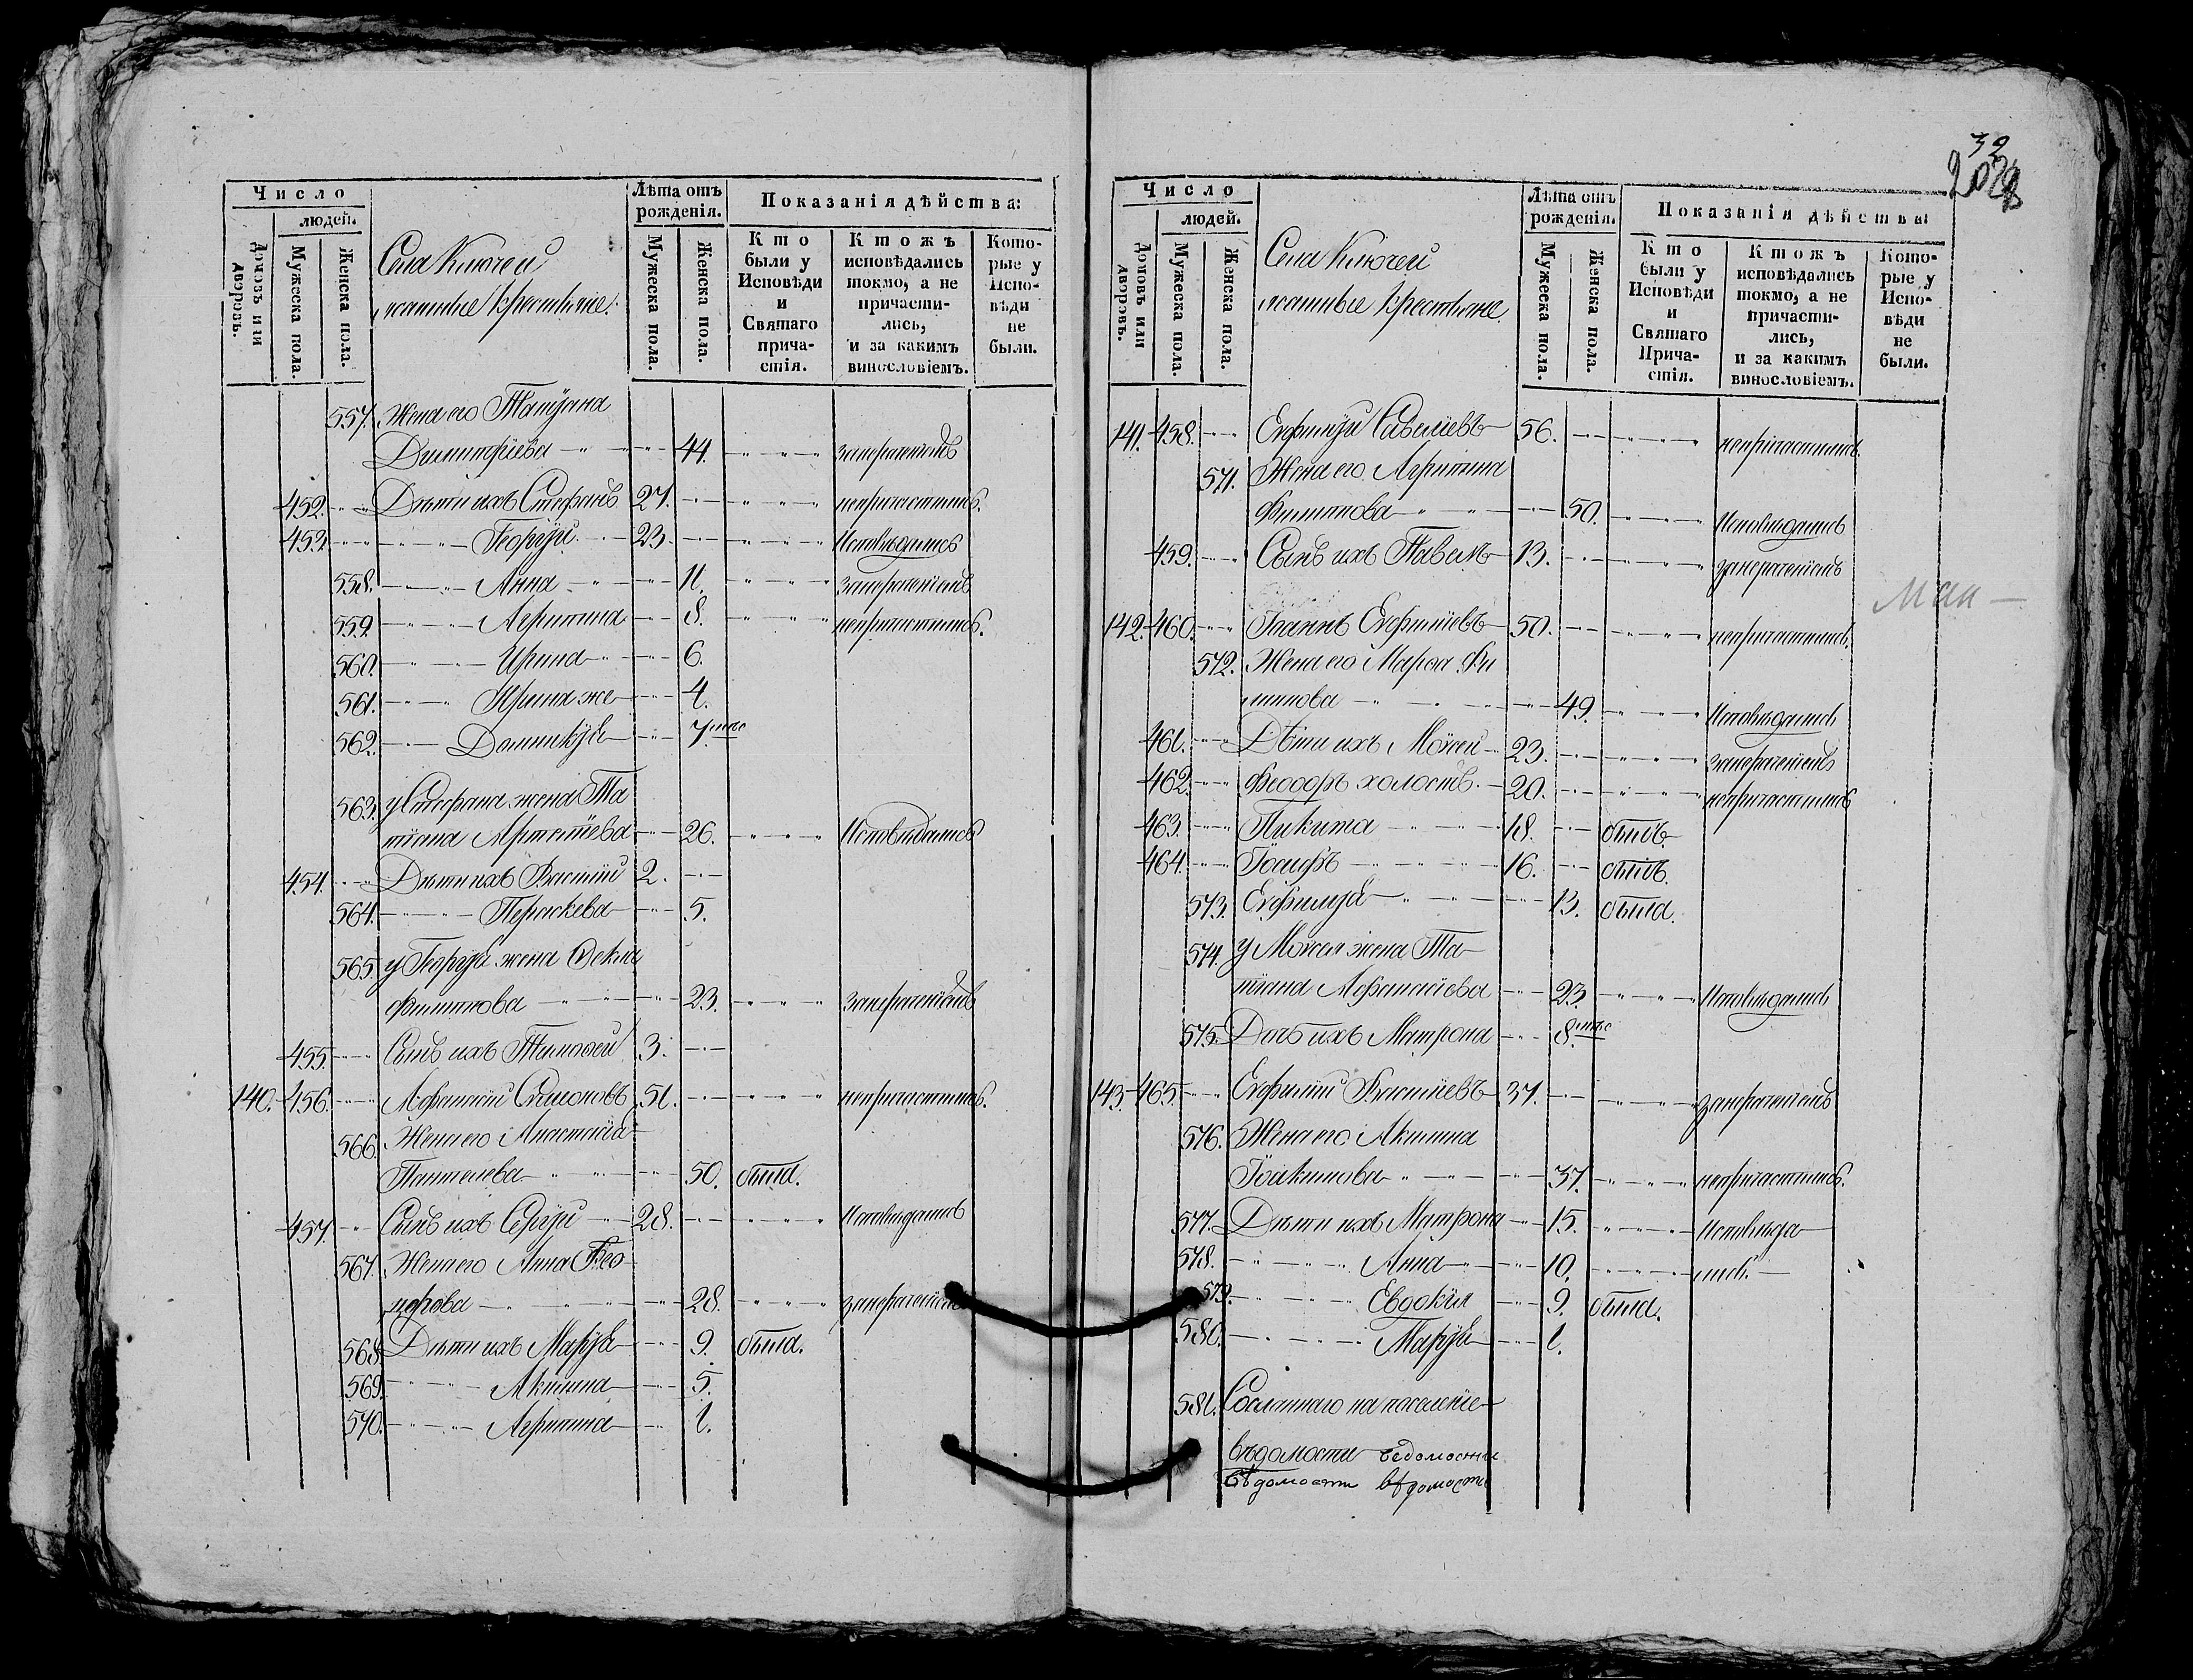 Число
людей.
Домовъ или дворовъ.
Мужеска пола.
Женска пола.
Села Ключей
ясашные крестьяне.
Лѣта отъ рожденія.
Мужеска пола.
Женска пола.
Показанія дѣйства:
Кто были у Исповѣди и Святаго причастія.
Ктожъ исповѣдались токмо, а не причастились, и за какимъ винословіемъ.
Которые у Исповѣди не были.
557. Жена его Татіана
Димитріева 44. занерачениемъ
452. Дѣти ихъ Стефанъ 27. непричастились.
453. Георгіи 23. Исповѣдались
558. Анна 11. занерачениемъ
559. Агрипина 8. непричастились.
560. Ирина 6.
561. Ирина же 4.
562. Доминикія 7 мѣс
563. у Стефана жена Та
тіана Артемиева 26. Исповѣдались
454. Дѣти ихъ Василіи 2.
564. Пераскева 5.
565. у Георгія жена Ѳекла
Филипова 23. занерачениемъ
455. Сынъ ихъ Тимоѳеи 3.
140. 456. Афанасіи Симоновъ 51. непричастились.
566. Жена его Анастасіа
Пантелеева 50. была.
457. Сынъ ихъ Сергіи 28. Исповѣдались
567. Жена его Анна Ѳео
дорова 28. занерачениемъ
568. Дѣти ихъ Марія 9. была.
569. Акилина 5.
570. Агрипина 1.
32
Число
людей.
Домовъ или дворовъ.
Мужеска пола.
Женска пола.
Села Ключей
ясашные крестьяне.
Лѣта отъ рожденія.
Мужеска пола.
Женска пола.
Показанія дѣйства:
Кто были у Исповѣди и Святаго Причастія.
Ктожъ исповѣдались токмо, а не причастились, и за какимъ винословіемъ.
Которые у Исповѣди не были.
141. 458. Евфиміи Савелиевъ 56. непричастились.
571. Жена его Агрипина
Филипова 50. Исповѣдались
459. Сынъ ихъ Павелъ 13. занерачениемъ
142. 460. Іоаннъ Евфиміевъ 50. непричастились.
572. Жена его Марѳа Фи
липова 49. Исповѣдались
461. Дѣти ихъ Моисеи 23. занерачениемъ
462. Ѳеодоръ холостъ. 20. непричастились
463. Никита 18. былъ.
464. Іосифъ 16. былъ.
573. Евфимія 13. была.
574. у Моисея жена Та
тіана Афанасиева 23. Исповѣдались
575. Дочь ихъ Матрона 8 мѣс
143. 465. Евфиміи Василіевъ 37. занерачениемъ
576. Жена его Акилина
Іоакимова 37. непричастились.
577. Дѣти ихъ Матрона 15. Исповѣда
578. Анна 10. лись.
579. Евдокия 9. была.
580. Марія 1.
581. Сосланнаго на поселение
вѣдомости вѣдомости
вѣдомости вѣдомости